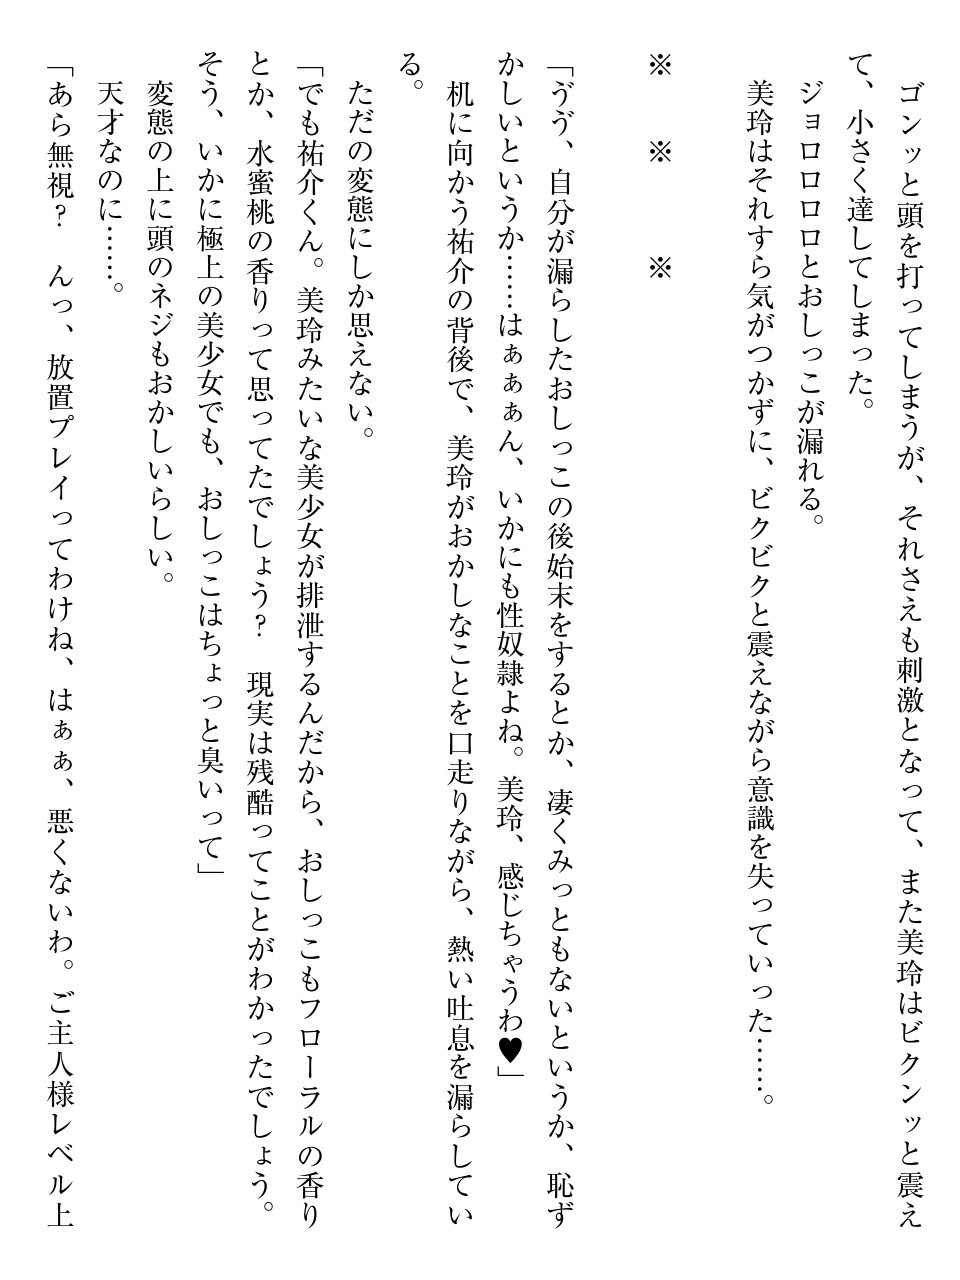 ゴンッと頭を打ってしまうが、それさえも刺激となって、また美玲はビクンッと震え
て、小さく達してしまった。
ジョロロロロとおしっこが漏れる。
美玲はそれすら気がつかずに、ビクビクと震えながら意識を失っていった……。
※　※　※
「ゔゔ、自分が漏らしたおしっこの後始末をするとか、凄くみっともないというか、恥ず
かしいというか……はぁぁぁん、いかにも性奴隷よね。美玲、感じちゃうわ♥」
机に向かう祐介の背後で、美玲がおかしなことを口走りながら、熱い吐息を漏らしてい
る。
ただの変態にしか思えない。
「でも祐介くん。美玲みたいな美少女が排泄するんだから、おしっこもフローラルの香り
とか、水蜜桃の香りって思ってたでしょう？　現実は残酷ってことがわかったでしょう。
そう、いかに極上の美少女でも、おしっこはちょっと臭いって」
変態の上に頭のネジもおかしいらしい。
天才なのに……。
「あら無視？　んっ、放置プレイってわけね、はぁぁ、悪くないわ。ご主人様レベル上